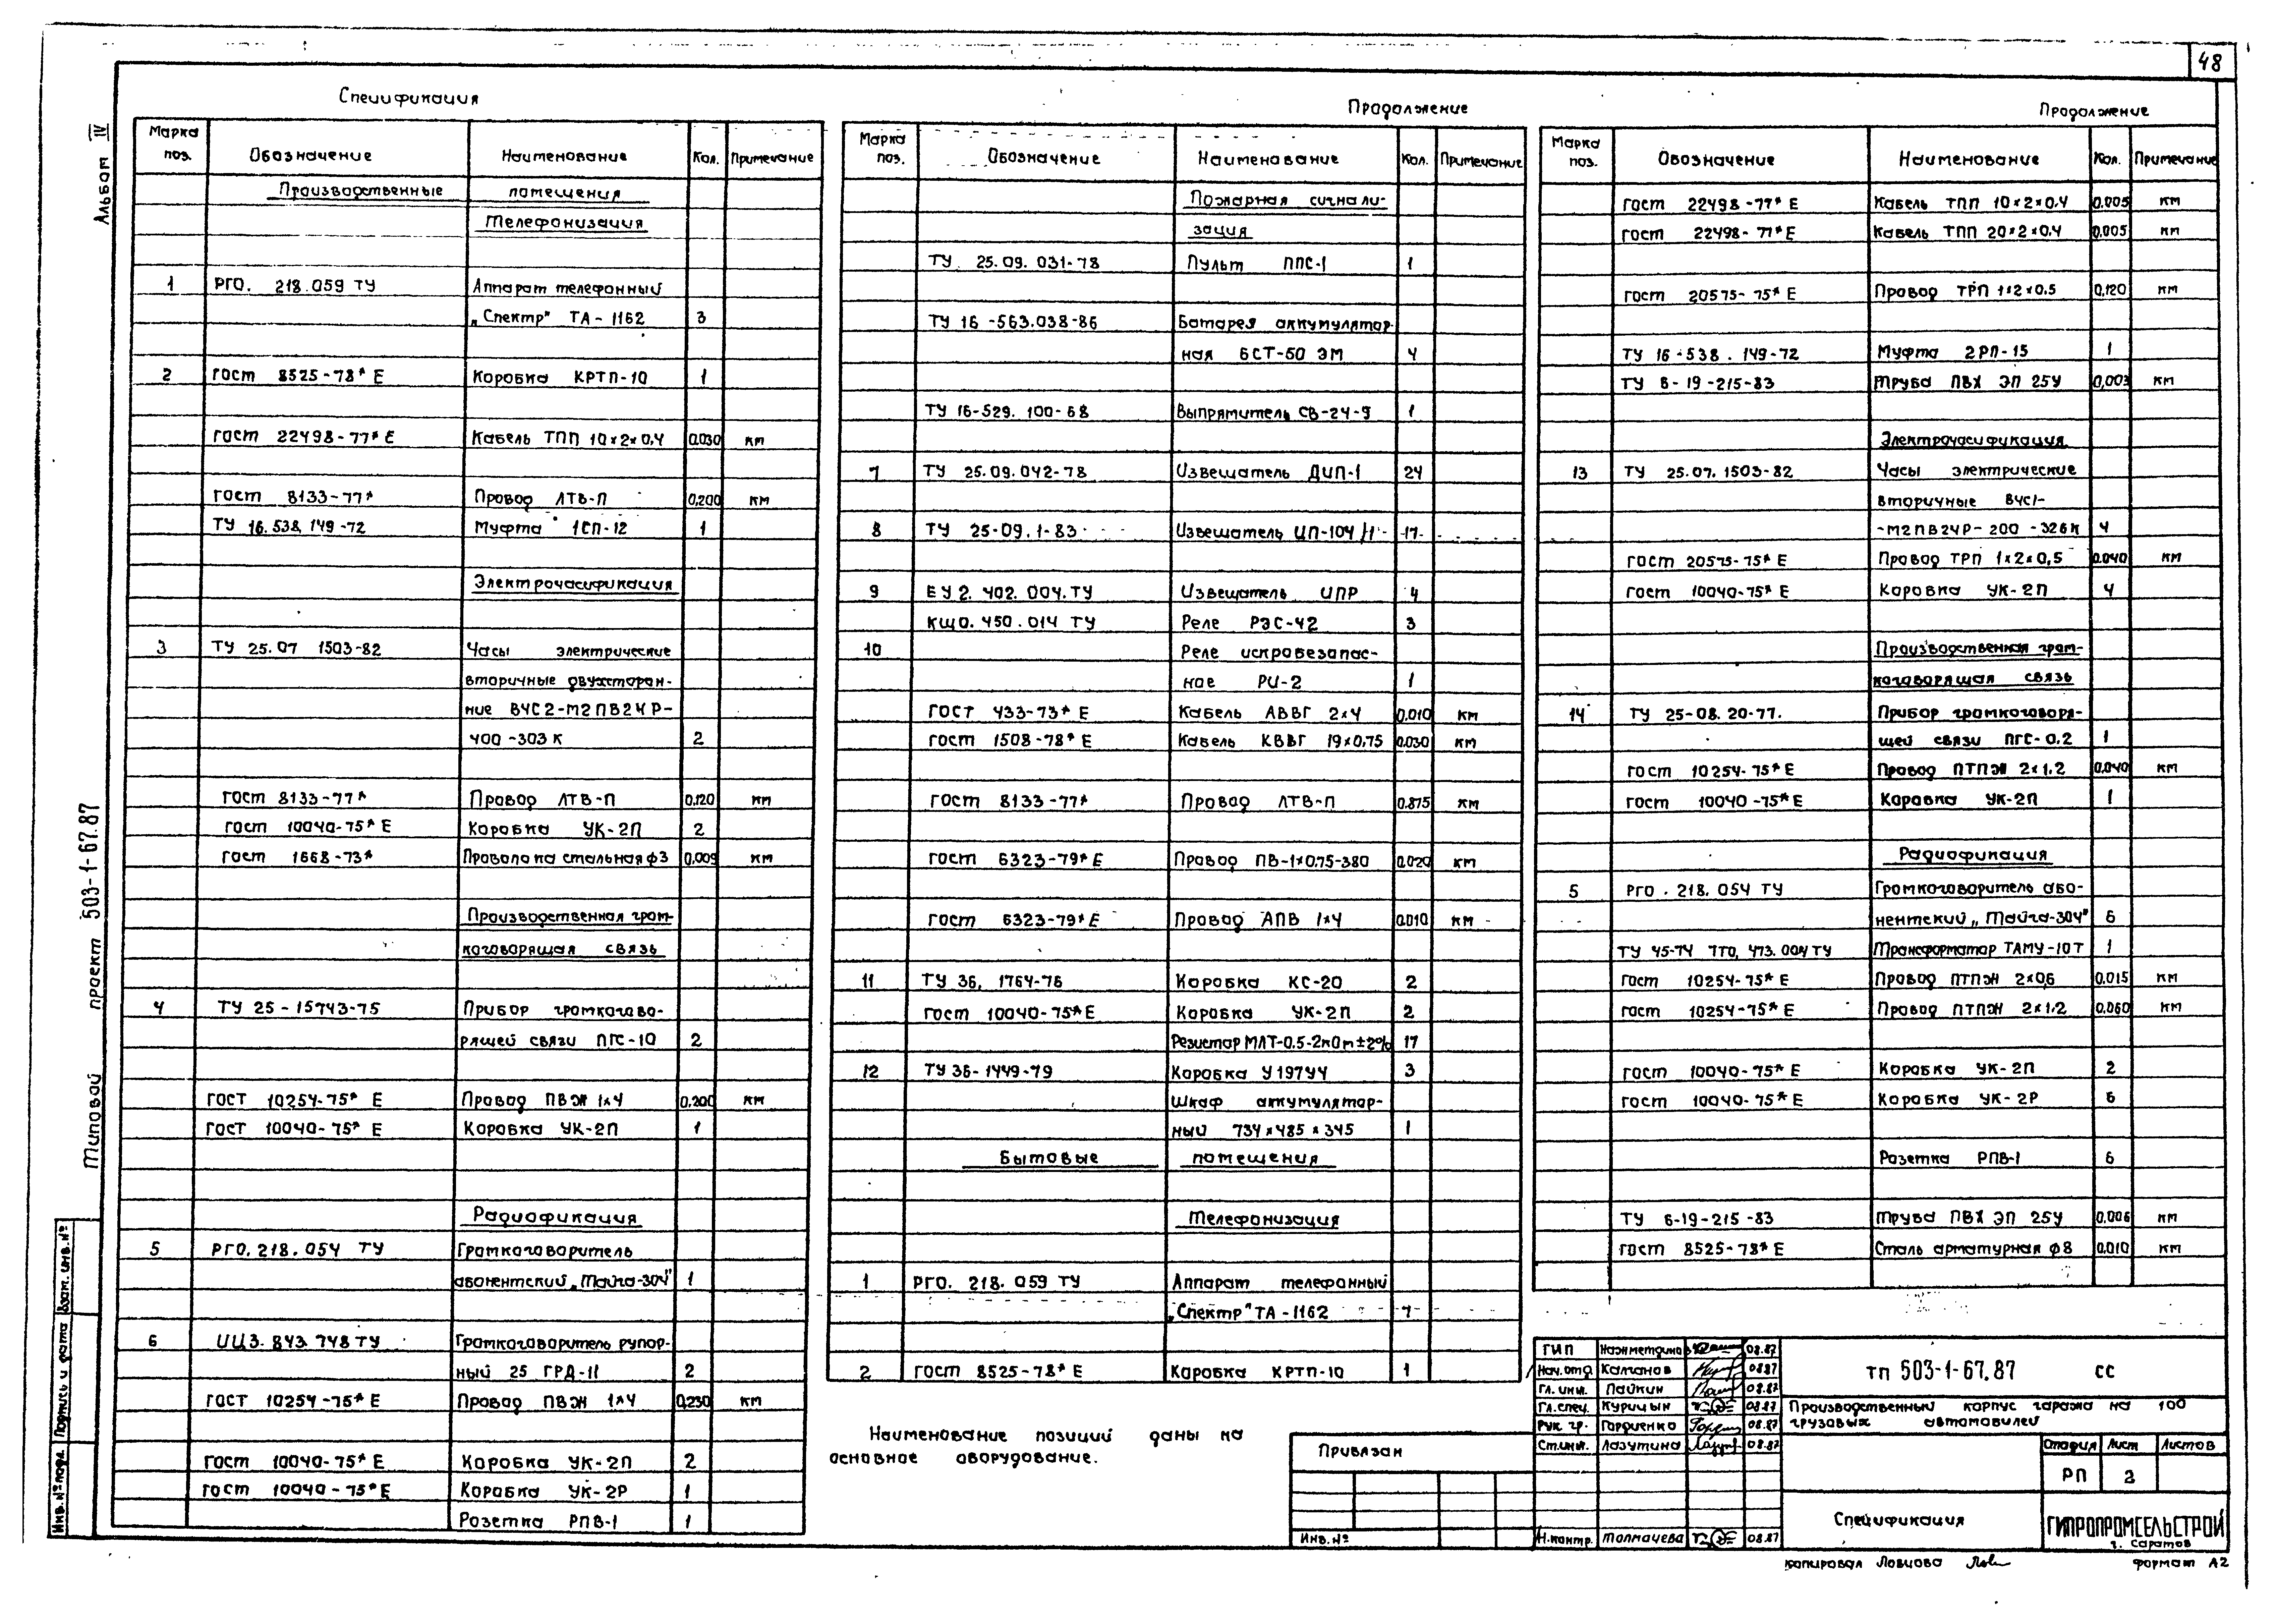 48
Альбом IV
Типовой проект 503-1-67.87
Взам. инв. №
Подпись и дата
Инв. № подл.
Спецификация
Марка поз. Обозначение Наименование Кол. Примечание
Производственные помещения
Телефонизация
1 РГО. 218.059 ТУ Аппарат телефонный
„Спектр" ТА-1162 3
2 ГОСТ 8525-78* Е Коробка КРТП-10 1
ГОСТ 22498-77* Е Кабель ТПП 10×2×0,4 0,030 км
ГОСТ 8133-77* Провод ЛТВ-П 0,200 км
ТУ 16.538.149-72 Муфта 1СП-12 1
Электрочасификация
3 ТУ 25.07 1503-82 Часы электрические
вторичные двухсторон-
ние ВЧС2-М2ПВ24Р-
400-303К 2
ГОСТ 8133-77* Провод ЛТВ-П 0,120 км
ГОСТ 10040-75* Е Коробка УК-2П 2
ГОСТ 1668-73* Проволока стальная ф3 0,009 км
Производственная гром-
коговорящая связь
4 ТУ 25-15743-75 Прибор громкогово-
рящей связи ПГС-10 2
ГОСТ 10254-75* Е Провод ПВЖ 1×4 0,200 км
ГОСТ 10040-75* Е Коробка УК-2П 1
Радиофикация
5 РГО. 218.054 ТУ Громкоговоритель
абонентский „Тайга-304" 1
6 ИЦ3. 843.748 ТУ Громкоговоритель рупор-
ный 25 ГРД-II 2
ГОСТ 10254-75* Е Провод ПВЖ 1×4 0,230 км
ГОСТ 10040-75* Е Коробка УК-2П 2
ГОСТ 10040-75* Е Коробка УК-2Р 1
Розетка РПВ-1 1
Продолжение
Марка поз. Обозначение Наименование Кол. Примечание
Пожарная сигнали-
зация
ТУ 25.09.031-78 Пульт ППС-1 1
ТУ 16-563.038-86 Батарея аккумулятор-
ная 6СТ-50 ЭМ 4
ТУ 16-529.100-68 Выпрямитель СВ-24-9 1
7 ТУ 25.09.042-78 Извещатель ДИП-1 24
8 ТУ 25-09.1-83 Извещатель ИП-104/1 17
9 ЕУ2. 402. 004. ТУ Извещатель ИПР 4
КЩО. 450. 014 ТУ Реле РЭС-42 3
10 Реле искробезопас-
ное РИ-2 1
ГОСТ 433-73* Е Кабель АВВГ 2×4 0,010 км
ГОСТ 1508-78* Е Кабель КВВГ 19×0,75 0,030 км
ГОСТ 8133-77* Провод ЛТВ-П 0,875 км
ГОСТ 6323-79* Е Провод ПВ-1×0,75-380 0,020 км
ГОСТ 6323-79* Е Провод АПВ 1×4 0,010 км
11 ТУ 36. 1764-76 Коробка КС-20 2
ГОСТ 10040-75* Е Коробка УК-2П 2
Резистор МЛТ-0,5-2кОм±2% 17
12 ТУ 36-1449-79 Коробка У197У4 3
Шкаф аккумулятор-
ный 734×485×345 1
Бытовые помещения
Телефонизация
1 РГО. 218. 059 ТУ Аппарат телефонный
„Спектр" ТА-1162 7
2 ГОСТ 8525-78* Е Коробка КРТП-10 1
Наименование позиций даны на
основное оборудование.
Продолжение
Марка поз. Обозначение Наименование Кол. Примечание
ГОСТ 22498-77* Е Кабель ТПП 10×2×0,4 0,005 км
ГОСТ 22498-77* Е Кабель ТПП 20×2×0,4 0,005 км
ГОСТ 20575-75* Е Провод ТРП 1×2×0,5 0,120 км
ТУ 16-538.149-72 Муфта 2РП-15 1
ТУ 6-19-215-83 Труба ПВХ ЭП 25У 0,003 км
Электрочасификация
13 ТУ 25.07.1503-82 Часы электрические
вторичные ВЧС1-
-М2ПВ24Р-200-326К 4
ГОСТ 20575-75* Е Провод ТРП 1×2×0,5 0,040 км
ГОСТ 10040-75* Е Коробка УК-2П 4
Производственная гром-
коговорящая связь
14 ТУ 25-08.20-77. Прибор громкоговоря-
щей связи ПГС-0,2 1
ГОСТ 10254-75* Е Провод ПТПЖ 2×1,2 0,040 км
ГОСТ 10040-75* Е Коробка УК-2П 1
Радиофикация
5 РГО. 218. 054 ТУ Громкоговоритель або-
нентский „Тайга-304" 6
ТУ 45-74 7ТО, 473.004 ТУ Трансформатор ТАМУ-10Т 1
ГОСТ 10254-75* Е Провод ПТПЖ 2×0,6 0,015 км
ГОСТ 10254-75* Е Провод ПТПЖ 2×1,2 0,060 км
ГОСТ 10040-75* Е Коробка УК-2П 2
ГОСТ 10040-75* Е Коробка УК-2Р 6
Розетка РПВ-1 6
ТУ 6-19-215-83 Труба ПВХ ЭП 25У 0,006 км
ГОСТ 8525-78* Е Сталь арматурная ф8 0,010 км
Привязан
Инв. №
ГИП 08.87
Нач. отд. Колчанов 08.87
Гл. инж. Пайкин 08.87
Гл. спец. Курицын 08.87
Рук. гр. Гордиенко 08.87
Ст. инж. Лазутина 08.87
Н. контр. Толмачева 08.87
ТП 503-1-67.87 СС
Производственный корпус гаража на 100
грузовых автомобилей
Стадия Лист Листов
РП 2
Спецификация
ГИПРОПРОМСЕЛЬСТРОЙ
г. Саратов
копировал Ловцова
формат А2